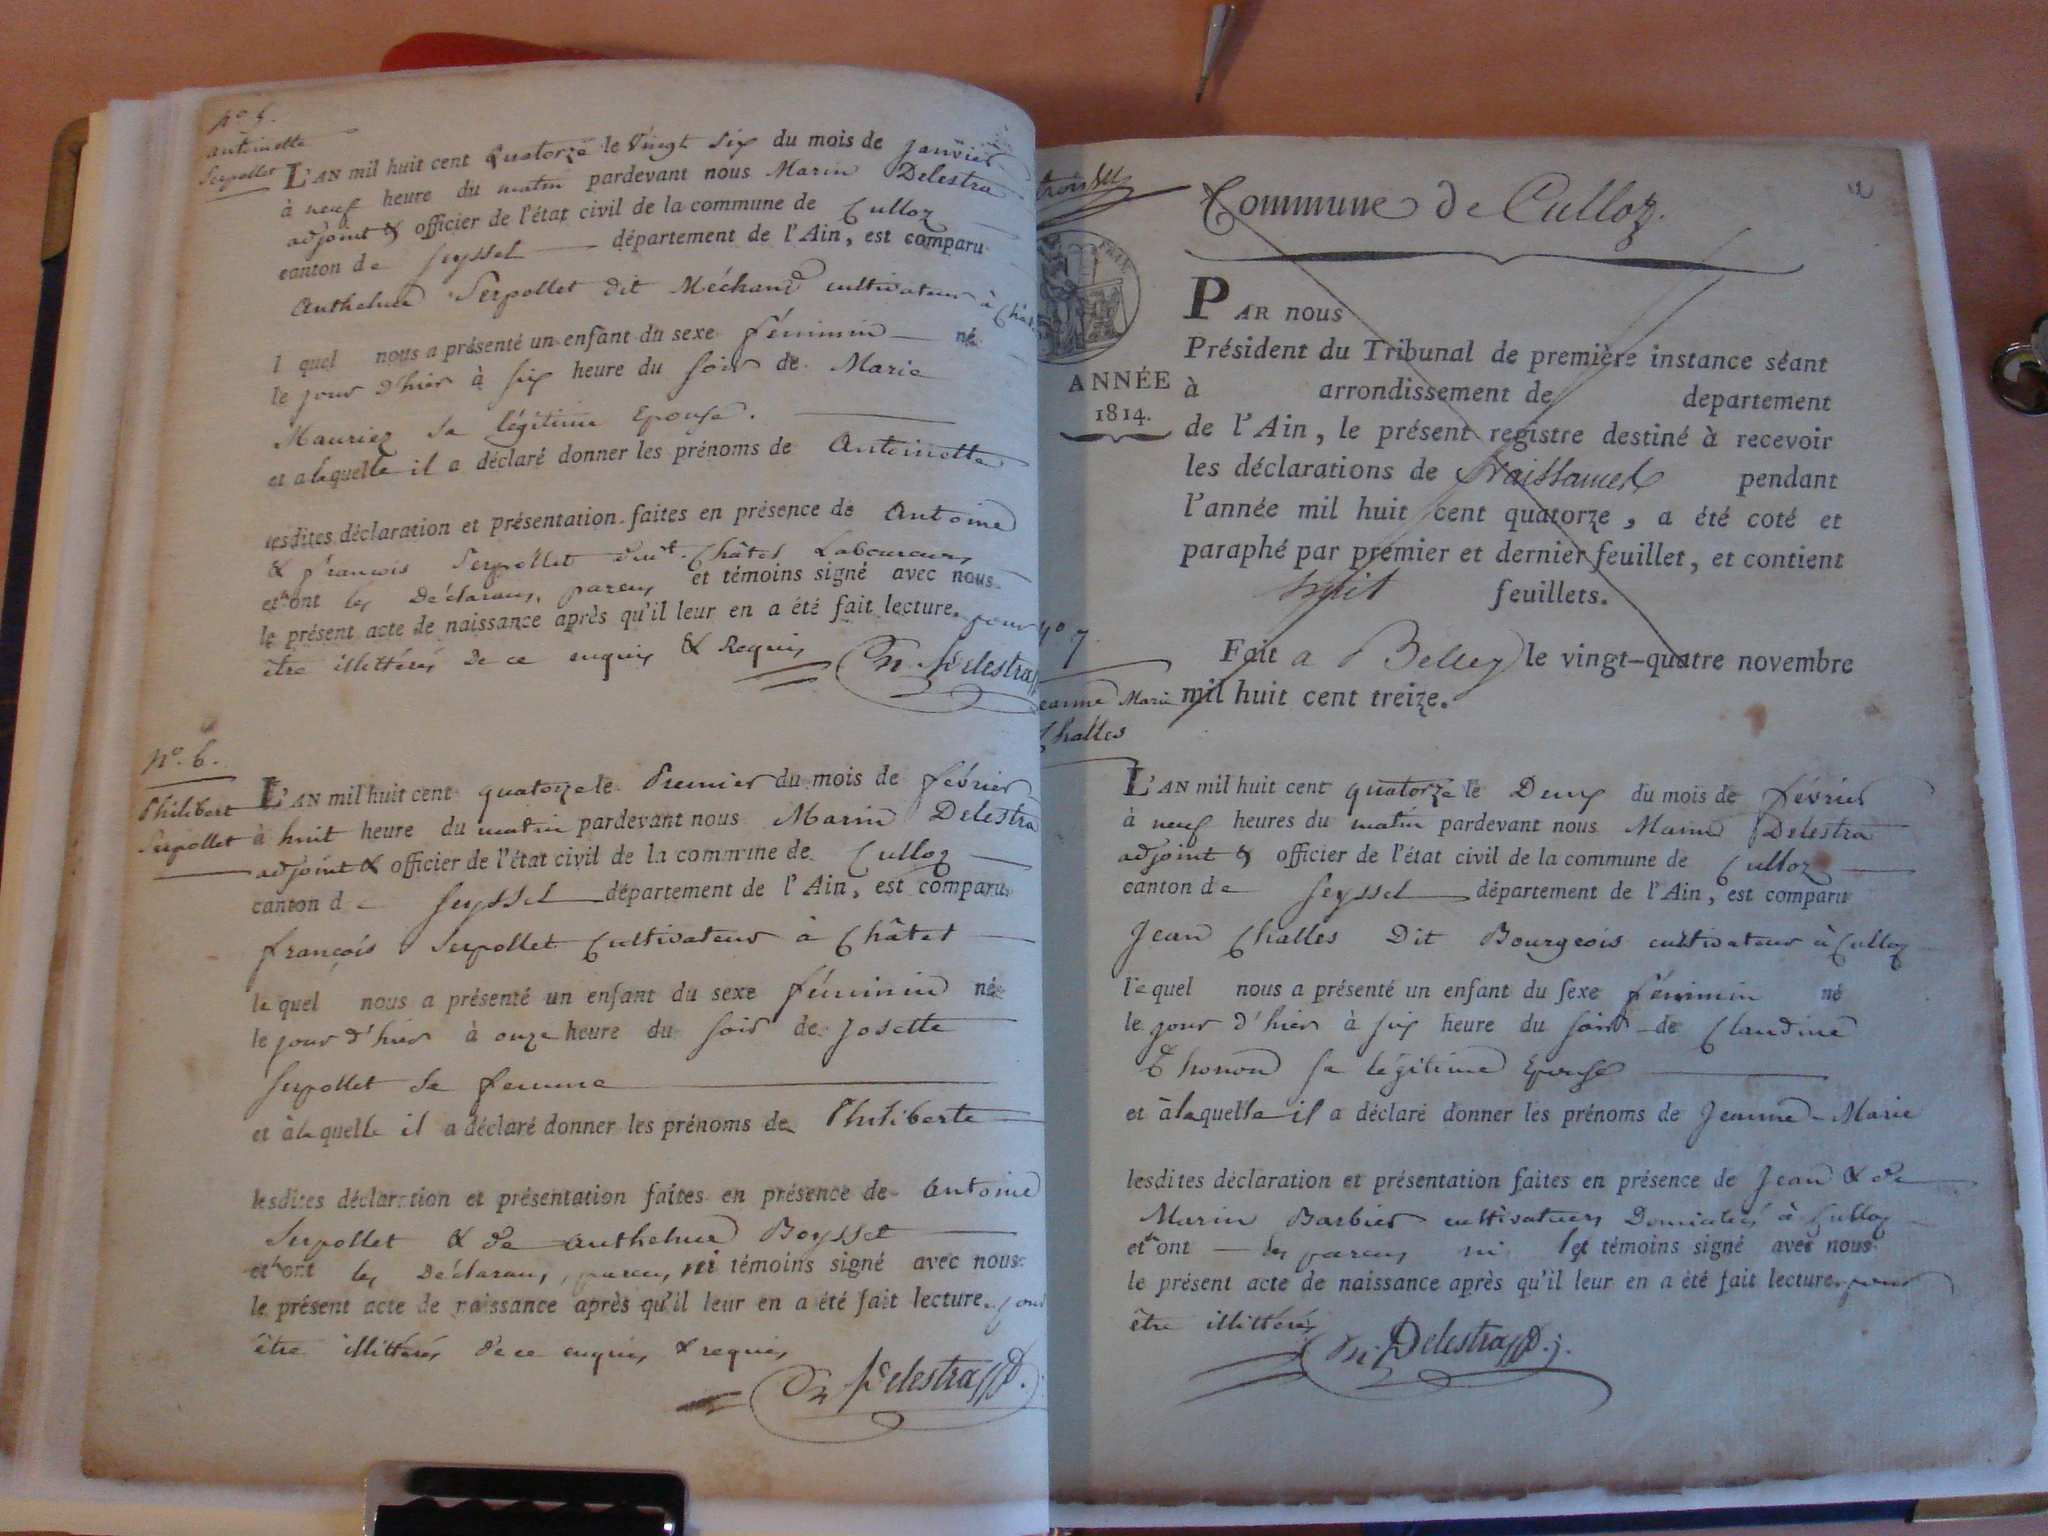 N.o 5.
antoinette
Serpollet
L'AN mil huit cent quatorze le vingt six du mois de janvier
à neuf heure du matin pardevant nous Marin Delestra
adjoint & officier de l'état civil de la commune de Culloz
canton de Seyssel département de l'Ain, est comparu
Anthelme Serpollet dit Méchand cultivateur à
l quel nous a présenté un enfant du sexe féminin né
le jour d'hier à six heure du soir de Marie
Mauriez sa légitime Epouse.
et a laquelle il a déclaré donner les prénoms de Antoinette
lesdites déclaration et présentation faites en présence de Antoine
& françois Serpollet Châtel Laboureurs
et ont les Déclarans, parens et témoins signé avec nous
le présent acte de naissance après qu'il leur en a été fait lecture. pour
être illittérés de ce enquis & Requis
Delestra
N.o 6.
Philibert
Serpollet
L'AN mil huit cent quatorze le Premier du mois de février
à huit heure du matin pardevant nous Marin Delestra
adjoint & officier de l'état civil de la commune de Culloz
canton de Seyssel département de l'Ain, est comparu
françois Serpollet Cultivateur à Châtel
le quel nous a présenté un enfant du sexe féminin né
le jour d'hier à onze heure du soir de Josette
Serpollet sa femme
et à la quelle il a déclaré donner les prénoms de Philiberte
lesdites déclaration et présentation faites en présence de Antoine
Serpollet & de anthelme Boysset
et ont les Déclarans, parens, ni témoins signé avec nous
le présent acte de naissance après qu'il leur en a été fait lecture. pour
être illittérés de ce enquis & requis
Delestra
Commune de Culloz.
ANNÉE
1814.
PAR nous
Président du Tribunal de première instance séant
à arrondissement de departement
de l'Ain, le présent registre destiné à recevoir
les déclarations de Naissances pendant
l'année mil huit cent quatorze, a été coté et
paraphé par premier et dernier feuillet, et contient
huit feuillets.
Fait a Belley le vingt-quatre novembre
mil huit cent treize.
N.o 7.
Jeanne Marie
Challes
L'AN mil huit cent quatorze le Deux du mois de février
à neuf heures du matin pardevant nous Marin Delestra
adjoint & officier de l'état civil de la commune de Culloz
canton de Seyssel département de l'Ain, est comparu
Jean Challes Dit Bourgeois cultivateur à Culloz
le quel nous a présenté un enfant du sexe féminin né
le jour d'hier à six heure du soir de Claudine
Thonon sa légitime Epouse
et à la quelle il a déclaré donner les prénoms de Jeanne-Marie
lesdites déclaration et présentation faites en présence de Jean & de
Marin Barbier cultivateurs Domiciliés à Culloz
et ont les parens ni les témoins signé avec nous
le présent acte de naissance après qu'il leur en a été fait lecture. pour
être illittérés
Delestra